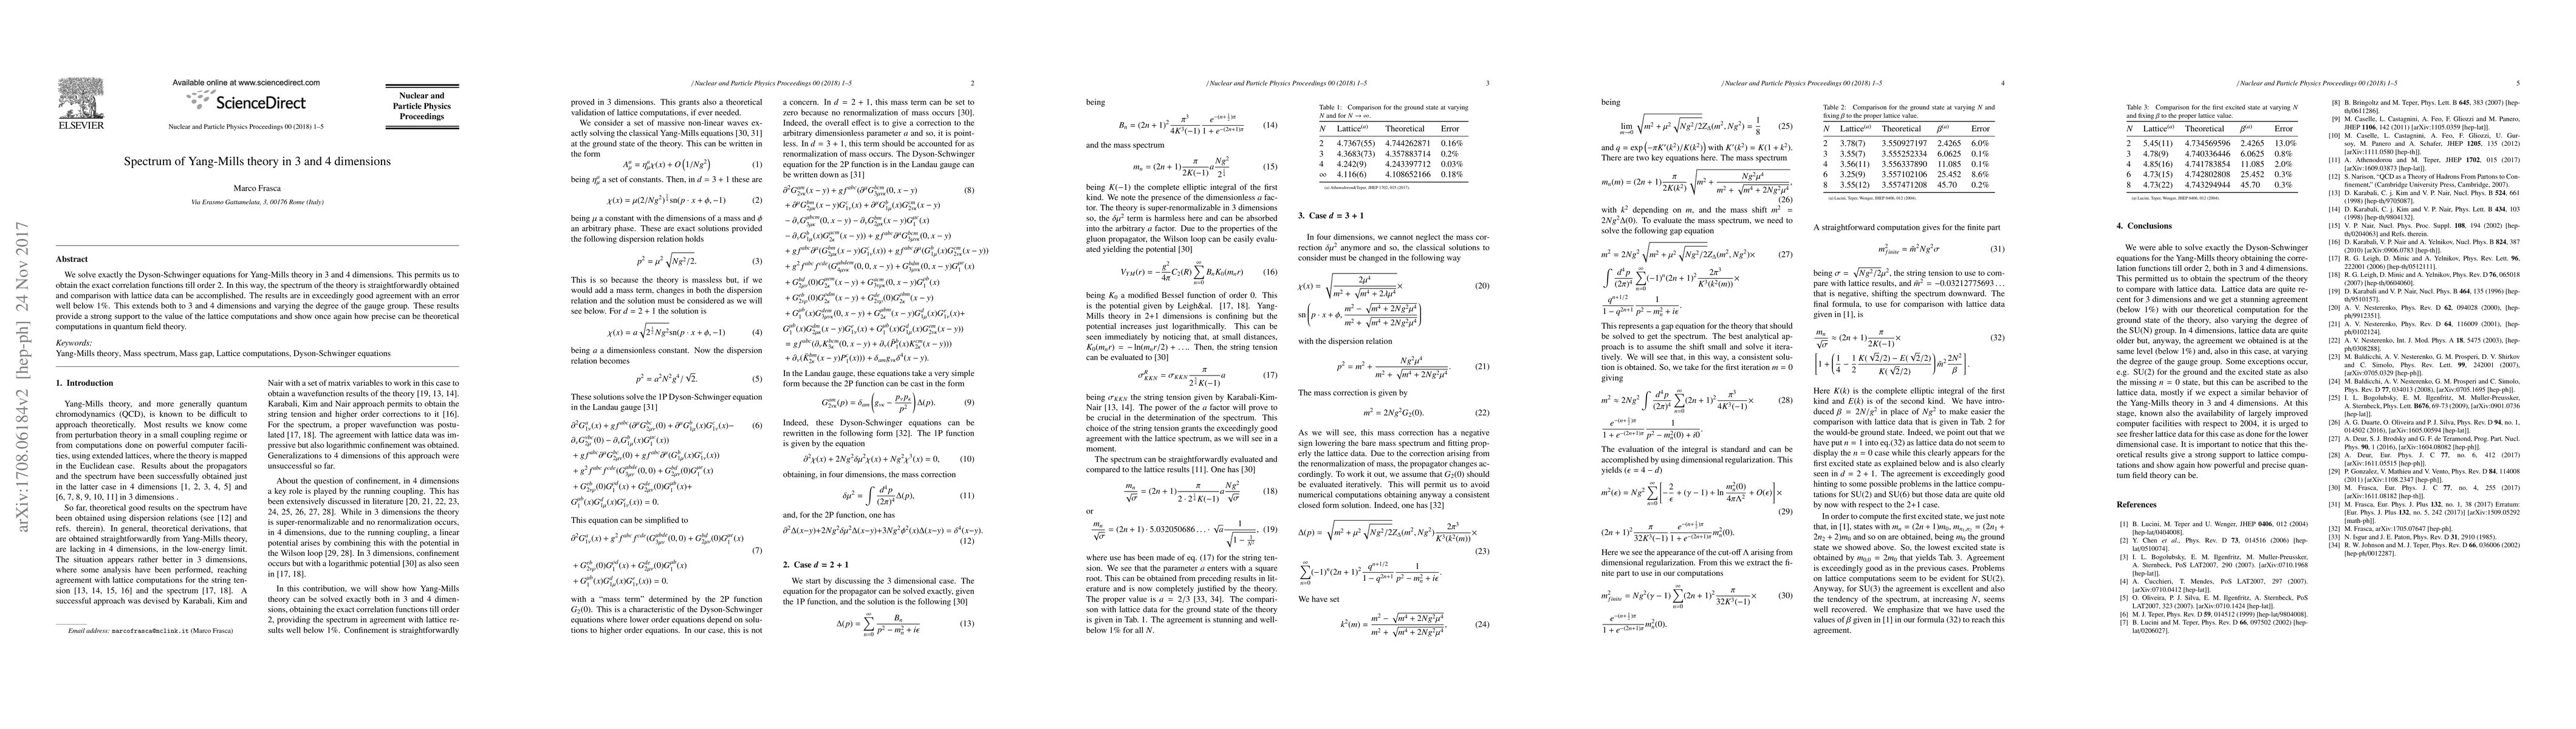 arXiv:1708.06184v2 [hep-ph] 24 Nov 2017
ELSEVIER
Available online at www.sciencedirect.com
ScienceDirect
Nuclear and Particle Physics Proceedings 00 (2018) 1–5
Nuclear and
Particle Physics
Proceedings
Spectrum of Yang-Mills theory in 3 and 4 dimensions
Marco Frasca
Via Erasmo Gattamelata, 3, 00176 Rome (Italy)
Abstract
We solve exactly the Dyson-Schwinger equations for Yang-Mills theory in 3 and 4 dimensions. This permits us to
obtain the exact correlation functions till order 2. In this way, the spectrum of the theory is straightforwardly obtained
and comparison with lattice data can be accomplished. The results are in exceedingly good agreement with an error
well below 1%. This extends both to 3 and 4 dimensions and varying the degree of the gauge group. These results
provide a strong support to the value of the lattice computations and show once again how precise can be theoretical
computations in quantum field theory.
Keywords:
Yang-Mills theory, Mass spectrum, Mass gap, Lattice computations, Dyson-Schwinger equations
1. Introduction
Yang-Mills theory, and more generally quantum
chromodynamics (QCD), is known to be difficult to
approach theoretically. Most results we know come
from perturbation theory in a small coupling regime or
from computations done on powerful computer facili-
ties, using extended lattices, where the theory is mapped
in the Euclidean case. Results about the propagators
and the spectrum have been successfully obtained just
in the latter case in 4 dimensions [1, 2, 3, 4, 5] and
[6, 7, 8, 9, 10, 11] in 3 dimensions .
So far, theoretical good results on the spectrum have
been obtained using dispersion relations (see [12] and
refs. therein). In general, theoretical derivations, that
are obtained straightforwardly from Yang-Mills theory,
are lacking in 4 dimensions, in the low-energy limit.
The situation appears rather better in 3 dimensions,
where some analysis have been performed, reaching
agreement with lattice computations for the string ten-
sion [13, 14, 15, 16] and the spectrum [17, 18]. A
successful approach was devised by Karabali, Kim and
Email address: marcofrasca@mclink.it (Marco Frasca)
Nair with a set of matrix variables to work in this case to
obtain a wavefunction results of the theory [19, 13, 14].
Karabali, Kim and Nair approach permits to obtain the
string tension and higher order corrections to it [16].
For the spectrum, a proper wavefunction was postu-
lated [17, 18]. The agreement with lattice data was im-
pressive but also logarithmic confinement was obtained.
Generalizations to 4 dimensions of this approach were
unsuccessful so far.
About the question of confinement, in 4 dimensions
a key role is played by the running coupling. This has
been extensively discussed in literature [20, 21, 22, 23,
24, 25, 26, 27, 28]. While in 3 dimensions the theory
is super-renormalizable and no renormalization occurs,
in 4 dimensions, due to the running coupling, a linear
potential arises by combining this with the potential in
the Wilson loop [29, 28]. In 3 dimensions, confinement
occurs but with a logarithmic potential [30] as also seen
in [17, 18].
In this contribution, we will show how Yang-Mills
theory can be solved exactly both in 3 and 4 dimen-
sions, obtaining the exact correlation functions till order
2, providing the spectrum in agreement with lattice re-
sults well below 1%. Confinement is straightforwardly
/ Nuclear and Particle Physics Proceedings 00 (2018) 1–5
2
proved in 3 dimensions. This grants also a theoretical
validation of lattice computations, if ever needed.
We consider a set of massive non-linear waves ex-
actly solving the classical Yang-Mills equations [30, 31]
at the ground state of the theory. This can be written in
the form
(1)
being η a set of constants. Then, in d = 3 + 1 these are
χ(x) = μ(2/Ng²)^{1/4} sn(p · x + ϕ, −1) (2)
being μ a constant with the dimensions of a mass and ϕ
an arbitrary phase. These are exact solutions provided
the following dispersion relation holds
p² = μ² √(Ng²/2). (3)
This is so because the theory is massless but, if we
would add a mass term, changes in both the dispersion
relation and the solution must be considered as we will
see below. For d = 2 + 1 the solution is
(4)
being a a dimensionless constant. Now the dispersion
relation becomes
p² = a²N²g⁴/ √2. (5)
These solutions solve the 1P Dyson-Schwinger equation
in the Landau gauge [31]
(6)
This equation can be simplified to
(7)
with a “mass term” determined by the 2P function
G₂(0). This is a characteristic of the Dyson-Schwinger
equations where lower order equations depend on solu-
tions to higher order equations. In our case, this is not
a concern. In d = 2 + 1, this mass term can be set to
zero because no renormalization of mass occurs [30].
Indeed, the overall effect is to give a correction to the
arbitrary dimensionless parameter a and so, it is point-
less. In d = 3 + 1, this term should be accounted for as
renormalization of mass occurs. The Dyson-Schwinger
equation for the 2P function is in the Landau gauge can
be written down as [31]
(8)
In the Landau gauge, these equations take a very simple
form because the 2P function can be cast in the form
(9)
Indeed, these Dyson-Schwinger equations can be
rewritten in the following form [32]. The 1P function
is given by the equation
∂²χ(x) + 2Ng²δμ²χ(x) + Ng²χ³(x) = 0, (10)
obtaining, in four dimensions, the mass correction
δμ² = ∫ d⁴p/(2π)⁴ Δ(p), (11)
and, for the 2P function, one has
∂²Δ(x−y)+2Ng²δμ²Δ(x−y)+3Ng²ϕ²(x)Δ(x−y) = δ⁴(x−y).
(12)
2. Case d = 2 + 1
We start by discussing the 3 dimensional case. The
equation for the propagator can be solved exactly, given
the 1P function, and the solution is the following [30]
(13)
/ Nuclear and Particle Physics Proceedings 00 (2018) 1–5
3
being
(14)
and the mass spectrum
(15)
being K(−1) the complete elliptic integral of the first
kind. We note the presence of the dimensionless a fac-
tor. The theory is super-renormalizable in 3 dimensions
so, the δμ² term is harmless here and can be absorbed
into the arbitrary a factor. Due to the properties of the
gluon propagator, the Wilson loop can be easily evalu-
ated yielding the potential [30]
(16)
being K₀ a modified Bessel function of order 0. This is
the potential given by Leigh&al. [17, 18]. Yang-
Mills theory in 2+1 dimensions is confining but the
potential increases just logarithmically. This can be
seen immediately by noticing that, at small distances,
K₀(mₙr) = − ln(mₙr/2) + . . .. Then, the string tension
can be evaluated to [30]
(17)
being σ_KKN the string tension given by Karabali-Kim-
Nair [13, 14]. The power of the a factor will prove to
be crucial in the determination of the spectrum. This
choice of the string tension grants the exceedingly good
agreement with the lattice spectrum, as we will see in a
moment.
The spectrum can be straightforwardly evaluated and
compared to the lattice results [11]. One has [30]
(18)
or
(19)
where use has been made of eq. (17) for the string ten-
sion. We see that the parameter a enters with a square
root. This can be obtained from preceding results in lit-
erature and is now completely justified by the theory.
The proper value is a = 2/3 [33, 34]. The compari-
son with lattice data for the ground state of the theory
is given in Tab. 1. The agreement is stunning and well-
below 1% for all N.
Table 1: Comparison for the ground state at varying
N and for N → ∞.
N Lattice(a) Theoretical Error
2 4.7367(55) 4.744262871 0.16%
3 4.3683(73) 4.357883714 0.2%
4 4.242(9) 4.243397712 0.03%
∞ 4.116(6) 4.108652166 0.18%
(a) Athenodorou&Teper, JHEP 1702, 015 (2017).
3. Case d = 3 + 1
In four dimensions, we cannot neglect the mass cor-
rection δμ² anymore and so, the classical solutions to
consider must be changed in the following way
(20)
with the dispersion relation
(21)
The mass correction is given by
m² = 2Ng²G₂(0). (22)
As we will see, this mass correction has a negative
sign lowering the bare mass spectrum and fitting prop-
erly the lattice data. Due to the correction arising from
the renormalization of mass, the propagator changes ac-
cordingly. To work it out, we assume that G₂(0) should
be evaluated iteratively. This will permit us to avoid
numerical computations obtaining anyway a consistent
closed form solution. Indeed, one has [32]
(23)
We have set
(24)
/ Nuclear and Particle Physics Proceedings 00 (2018) 1–5
4
being
(25)
and q = exp(−πK′(k²)/K(k²)) with K′(k²) = K(1 + k²).
There are two key equations here. The mass spectrum
(26)
with k² depending on m, and the mass shift m² =
2Ng²Δ(0). To evaluate the mass spectrum, we need to
solve the following gap equation
(27)
This represents a gap equation for the theory that should
be solved to get the spectrum. The best analytical ap-
proach is to assume the shift small and solve it itera-
tively. We will see that, in this way, a consistent solu-
tion is obtained. So, we take for the first iteration m = 0
giving
(28)
The evaluation of the integral is standard and can be
accomplished by using dimensional regularization. This
yields (ϵ = 4 − d)
(29)
Here we see the appearance of the cut-off Λ arising from
dimensional regularization. From this we extract the fi-
nite part to use in our computations
(30)
Table 2: Comparison for the ground state at varying N and
fixing β to the proper lattice value.
N Lattice(a) Theoretical β(a) Error
2 3.78(7) 3.550927197 2.4265 6.0%
3 3.55(7) 3.555252334 6.0625 0.1%
4 3.56(11) 3.556337890 11.085 0.1%
6 3.25(9) 3.557102106 25.452 8.6%
8 3.55(12) 3.557471208 45.70 0.2%
(a) Lucini, Teper, Wenger, JHEP 0406, 012 (2004).
A straightforward computation gives for the finite part
(31)
being σ = √(Ng²/2)μ², the string tension to use to com-
pare with lattice results, and m̃² = −0.03212775693 . . .
that is negative, shifting the spectrum downward. The
final formula, to use for comparison with lattice data
given in [1], is
(32)
Here K(k) is the complete elliptic integral of the first
kind and E(k) is of the second kind. We have intro-
duced β = 2N/g² in place of Ng² to make easier the
comparison with lattice data that is given in Tab. 2 for
the would-be ground state. Indeed, we point out that we
have put n = 1 into eq.(32) as lattice data do not seem to
display the n = 0 case while this clearly appears for the
first excited state as explained below and is also clearly
seen in d = 2 + 1. The agreement is exceedingly good
hinting to some possible problems in the lattice compu-
tations for SU(2) and SU(6) but those data are quite old
by now with respect to the 2+1 case.
In order to compute the first excited state, we just note
that, in [1], states with mₙ = (2n + 1)m₀, mₙ₁,ₙ₂ = (2n₁ +
2n₂ + 2)m₀ and so on are obtained, being m₀ the ground
state we showed above. So, the lowest excited state is
obtained by m₀,₀ = 2m₀ that yields Tab. 3. Agreement
is exceedingly good as in the previous cases. Problems
on lattice computations seem to be evident for SU(2).
Anyway, for SU(3) the agreement is excellent and also
the tendency of the spectrum, at increasing N, seems
well recovered. We emphasize that we have used the
values of β given in [1] in our formula (32) to reach this
agreement.
/ Nuclear and Particle Physics Proceedings 00 (2018) 1–5
5
Table 3: Comparison for the first excited state at varying N
and fixing β to the proper lattice value.
N Lattice(a) Theoretical β(a) Error
2 5.45(11) 4.734569596 2.4265 13.0%
3 4.78(9) 4.740336446 6.0625 0.8%
4 4.85(16) 4.741783854 11.085 2.0%
6 4.73(15) 4.742802808 25.452 0.3%
8 4.73(22) 4.743294944 45.70 0.3%
(a) Lucini, Teper, Wenger, JHEP 0406, 012 (2004).
4. Conclusions
We were able to solve exactly the Dyson-Schwinger
equations for the Yang-Mills theory obtaining the corre-
lation functions till order 2, both in 3 and 4 dimensions.
This permitted us to obtain the spectrum of the theory
to compare with lattice data. Lattice data are quite re-
cent for 3 dimensions and we get a stunning agreement
(below 1%) with our theoretical computation for the
ground state of the theory, also varying the degree of
the SU(N) group. In 4 dimensions, lattice data are quite
older but, anyway, the agreement we obtained is at the
same level (below 1%) and, also in this case, at varying
the degree of the gauge group. Some exceptions occur,
e.g. SU(2) for the ground and the excited state as also
the missing n = 0 state, but this can be ascribed to the
lattice data, mostly if we expect a similar behavior of
the Yang-Mills theory in 3 and 4 dimensions. At this
stage, known also the availability of largely improved
computer facilities with respect to 2004, it is urged to
see fresher lattice data for this case as done for the lower
dimensional case. It is important to notice that this the-
oretical results give a strong support to lattice computa-
tions and show again how powerful and precise quan-
tum field theory can be.
References
[1] B. Lucini, M. Teper and U. Wenger, JHEP 0406, 012 (2004)
[hep-lat/0404008].
[2] Y. Chen et al., Phys. Rev. D 73, 014516 (2006) [hep-
lat/0510074].
[3] I. L. Bogolubsky, E. M. Ilgenfritz, M. Muller-Preussker,
A. Sternbeck, PoS LAT2007, 290 (2007). [arXiv:0710.1968
[hep-lat]].
[4] A. Cucchieri, T. Mendes, PoS LAT2007, 297 (2007).
[arXiv:0710.0412 [hep-lat]].
[5] O. Oliveira, P. J. Silva, E. M. Ilgenfritz, A. Sternbeck, PoS
LAT2007, 323 (2007). [arXiv:0710.1424 [hep-lat]].
[6] M. J. Teper, Phys. Rev. D 59, 014512 (1999) [hep-lat/9804008].
[7] B. Lucini and M. Teper, Phys. Rev. D 66, 097502 (2002) [hep-
lat/0206027].
[8] B. Bringoltz and M. Teper, Phys. Lett. B 645, 383 (2007) [hep-
th/0611286].
[9] M. Caselle, L. Castagnini, A. Feo, F. Gliozzi and M. Panero,
JHEP 1106, 142 (2011) [arXiv:1105.0359 [hep-lat]].
[10] M. Caselle, L. Castagnini, A. Feo, F. Gliozzi, U. Gur-
soy, M. Panero and A. Schafer, JHEP 1205, 135 (2012)
[arXiv:1111.0580 [hep-th]].
[11] A. Athenodorou and M. Teper, JHEP 1702, 015 (2017)
[arXiv:1609.03873 [hep-lat]].
[12] S. Narison, “QCD as a Theory of Hadrons From Partons to Con-
finement,” (Cambridge University Press, Cambridge, 2007).
[13] D. Karabali, C. j. Kim and V. P. Nair, Nucl. Phys. B 524, 661
(1998) [hep-th/9705087].
[14] D. Karabali, C. j. Kim and V. P. Nair, Phys. Lett. B 434, 103
(1998) [hep-th/9804132].
[15] V. P. Nair, Nucl. Phys. Proc. Suppl. 108, 194 (2002) [hep-
th/0204063] and Refs. therein.
[16] D. Karabali, V. P. Nair and A. Yelnikov, Nucl. Phys. B 824, 387
(2010) [arXiv:0906.0783 [hep-th]].
[17] R. G. Leigh, D. Minic and A. Yelnikov, Phys. Rev. Lett. 96,
222001 (2006) [hep-th/0512111].
[18] R. G. Leigh, D. Minic and A. Yelnikov, Phys. Rev. D 76, 065018
(2007) [hep-th/0604060].
[19] D. Karabali and V. P. Nair, Nucl. Phys. B 464, 135 (1996) [hep-
th/9510157].
[20] A. V. Nesterenko, Phys. Rev. D 62, 094028 (2000), [hep-
ph/9912351].
[21] A. V. Nesterenko, Phys. Rev. D 64, 116009 (2001), [hep-
ph/0102124].
[22] A. V. Nesterenko, Int. J. Mod. Phys. A 18, 5475 (2003), [hep-
ph/0308288].
[23] M. Baldicchi, A. V. Nesterenko, G. M. Prosperi, D. V. Shirkov
and C. Simolo, Phys. Rev. Lett. 99, 242001 (2007),
[arXiv:0705.0329 [hep-ph]].
[24] M. Baldicchi, A. V. Nesterenko, G. M. Prosperi and C. Simolo,
Phys. Rev. D 77, 034013 (2008), [arXiv:0705.1695 [hep-ph]].
[25] I. L. Bogolubsky, E. M. Ilgenfritz, M. Muller-Preussker,
A. Sternbeck, Phys. Lett. B676, 69-73 (2009), [arXiv:0901.0736
[hep-lat]].
[26] A. G. Duarte, O. Oliveira and P. J. Silva, Phys. Rev. D 94, no. 1,
014502 (2016), [arXiv:1605.00594 [hep-lat]].
[27] A. Deur, S. J. Brodsky and G. F. de Teramond, Prog. Part. Nucl.
Phys. 90, 1 (2016) [arXiv:1604.08082 [hep-ph]].
[28] A. Deur, Eur. Phys. J. C 77, no. 6, 412 (2017)
[arXiv:1611.05515 [hep-ph]].
[29] P. Gonzalez, V. Mathieu and V. Vento, Phys. Rev. D 84, 114008
(2011) [arXiv:1108.2347 [hep-ph]].
[30] M. Frasca, Eur. Phys. J. C 77, no. 4, 255 (2017)
[arXiv:1611.08182 [hep-th]].
[31] M. Frasca, Eur. Phys. J. Plus 132, no. 1, 38 (2017) Erratum:
[Eur. Phys. J. Plus 132, no. 5, 242 (2017)] [arXiv:1509.05292
[math-ph]].
[32] M. Frasca, arXiv:1705.07647 [hep-ph].
[33] N. Isgur and J. E. Paton, Phys. Rev. D 31, 2910 (1985).
[34] R. W. Johnson and M. J. Teper, Phys. Rev. D 66, 036006 (2002)
[hep-ph/0012287].